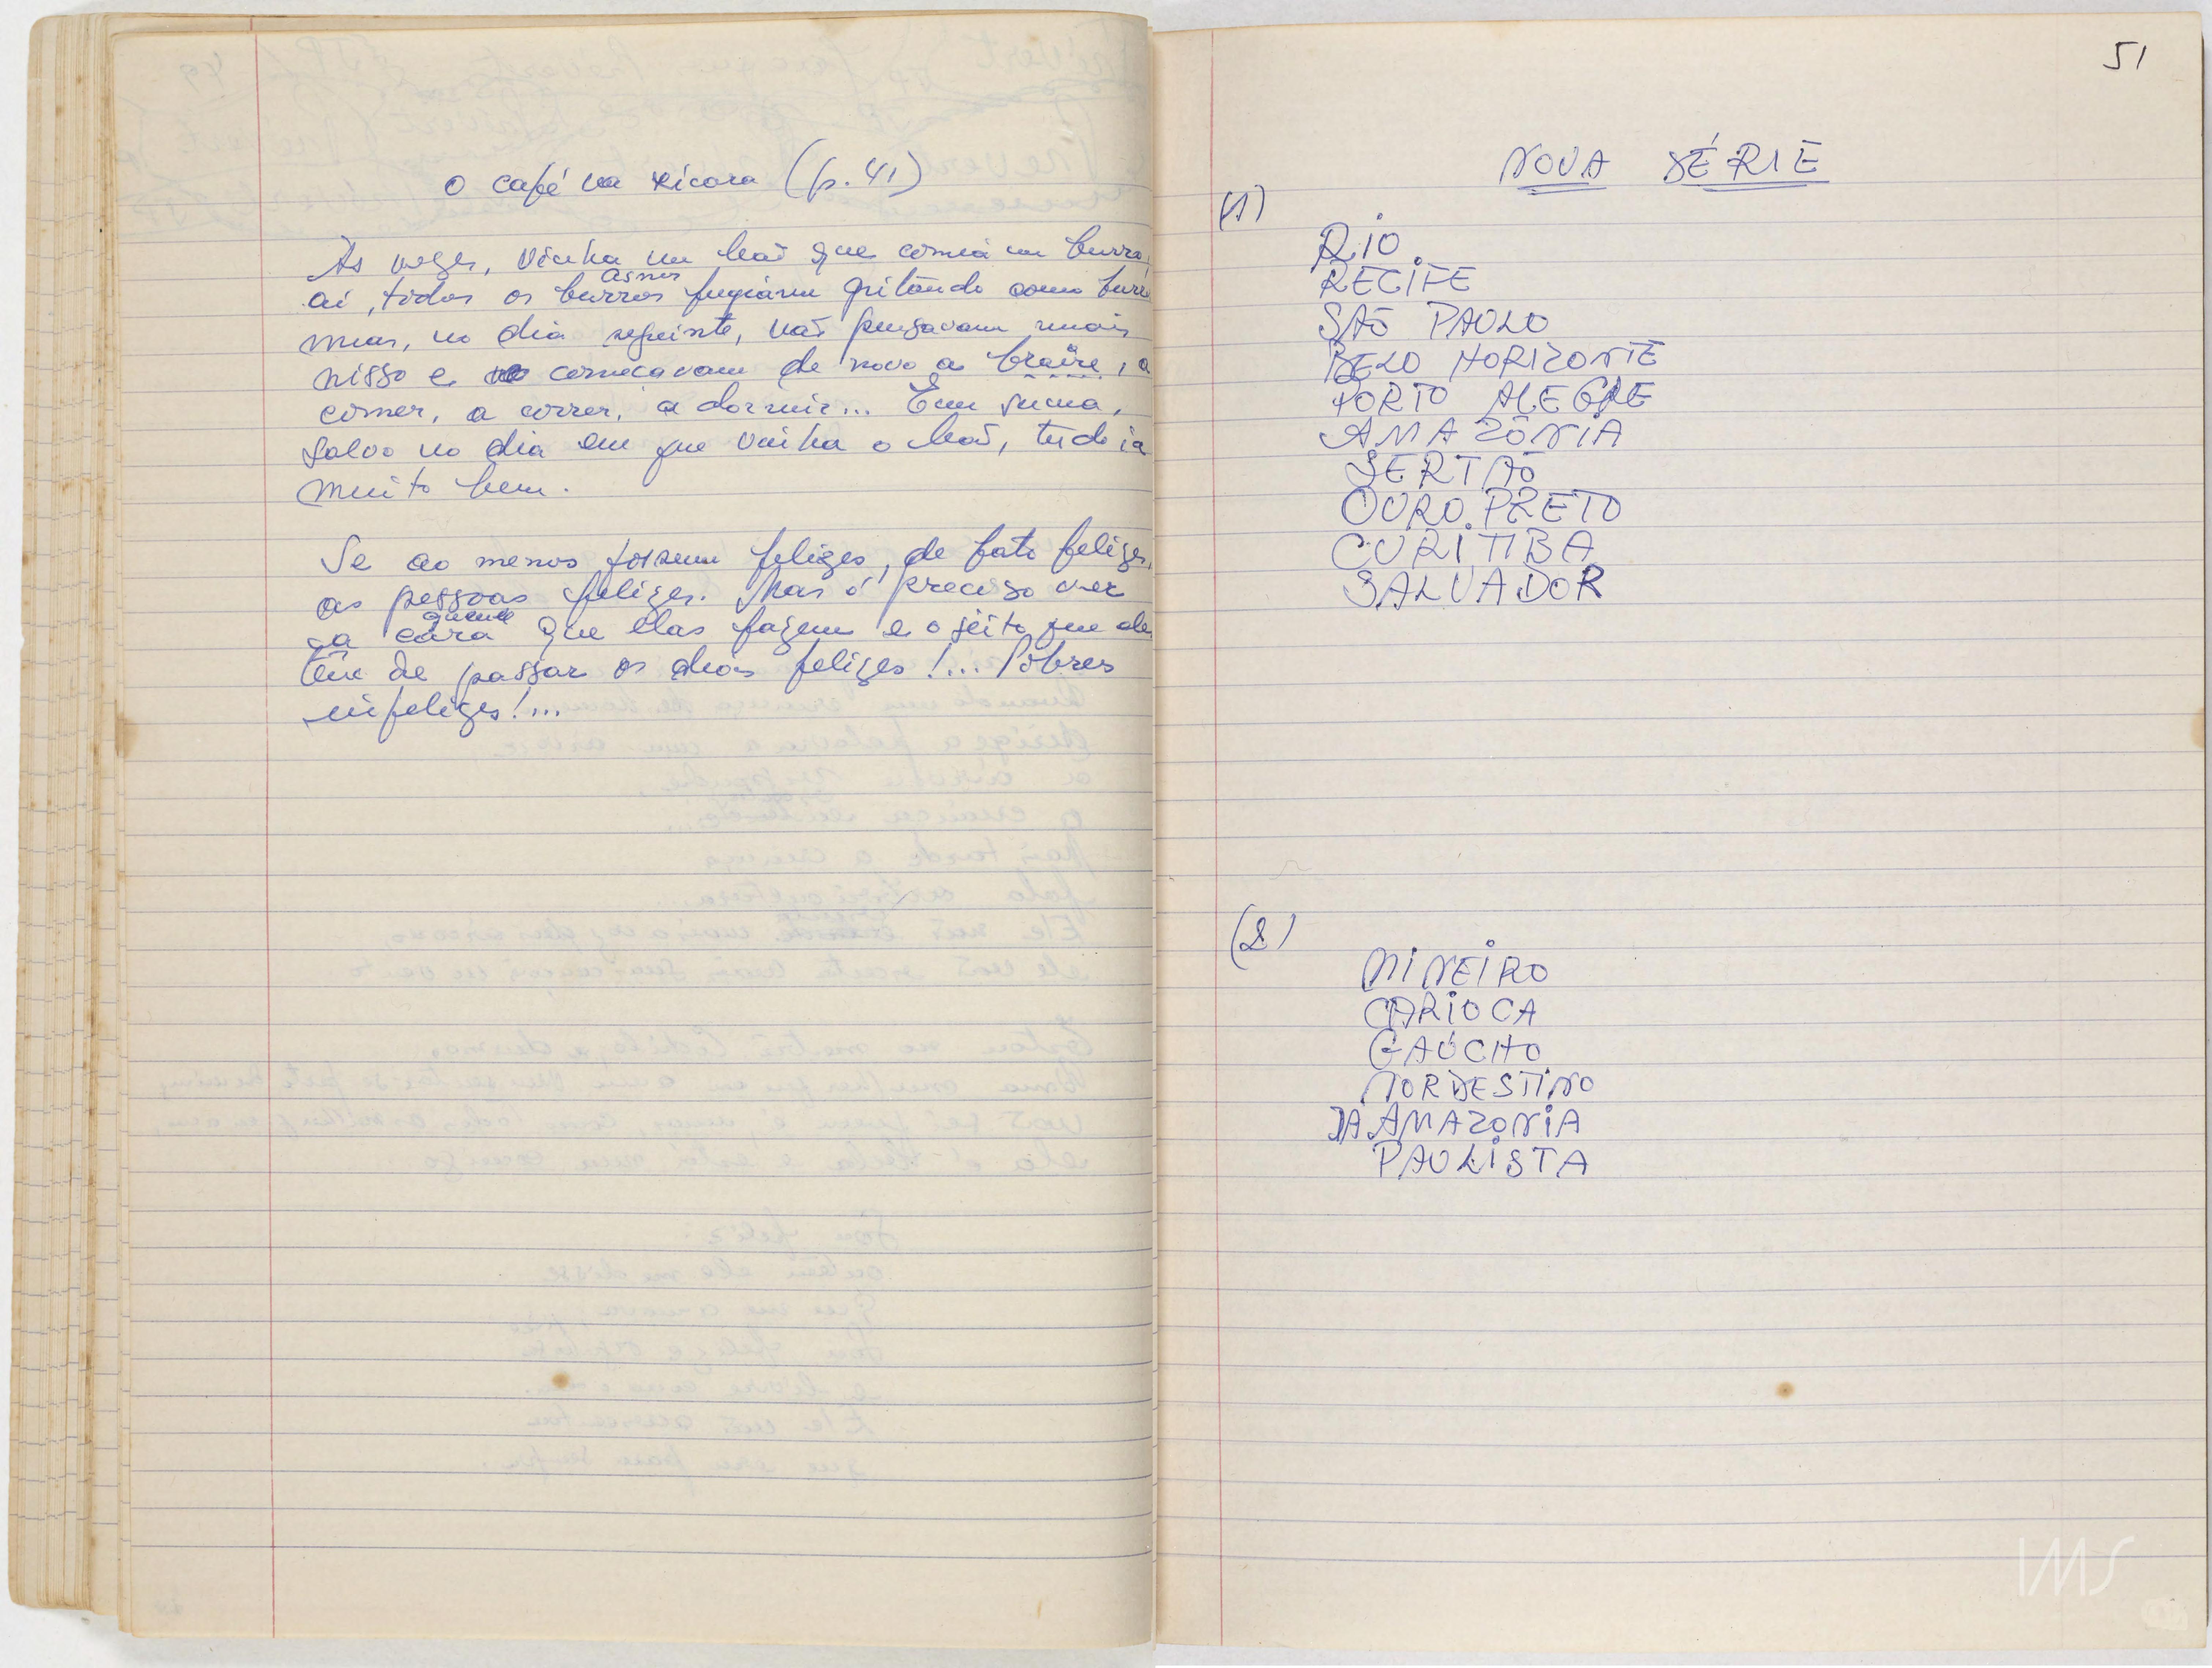 O café na xícara (p. 41)
Às vezes, vinha um leão que comia um burro,
aí, todos os burros fugiam gritando como burro
asnos
mas, no dia seguinte, não pensavam mais
nisso e começavam de novo a braire, a
comer, a correr, a dormir... Em suma,
salvo no dia em que vinha o leão, tudo ia
muito bem.
Se ao menos fossem felizes, de fato felizes,
as pessoas felizes. Mas é preciso ver
a cara que elas fazem e o jeito que elas
têm de passar os dias felizes!... Pobres
infelizes!...
51
NOVA SÉRIE
(1)
RIO
RECIFE
SÃO PAULO
BELO HORIZONTE
PORTO ALEGRE
AMAZÔNIA
SERTÃO
OURO PRETO
CURITIBA
SALVADOR
(2)
MINEIRO
CARIOCA
GAÚCHO
NORDESTINO
DA AMAZONIA
PAULISTA
IMS